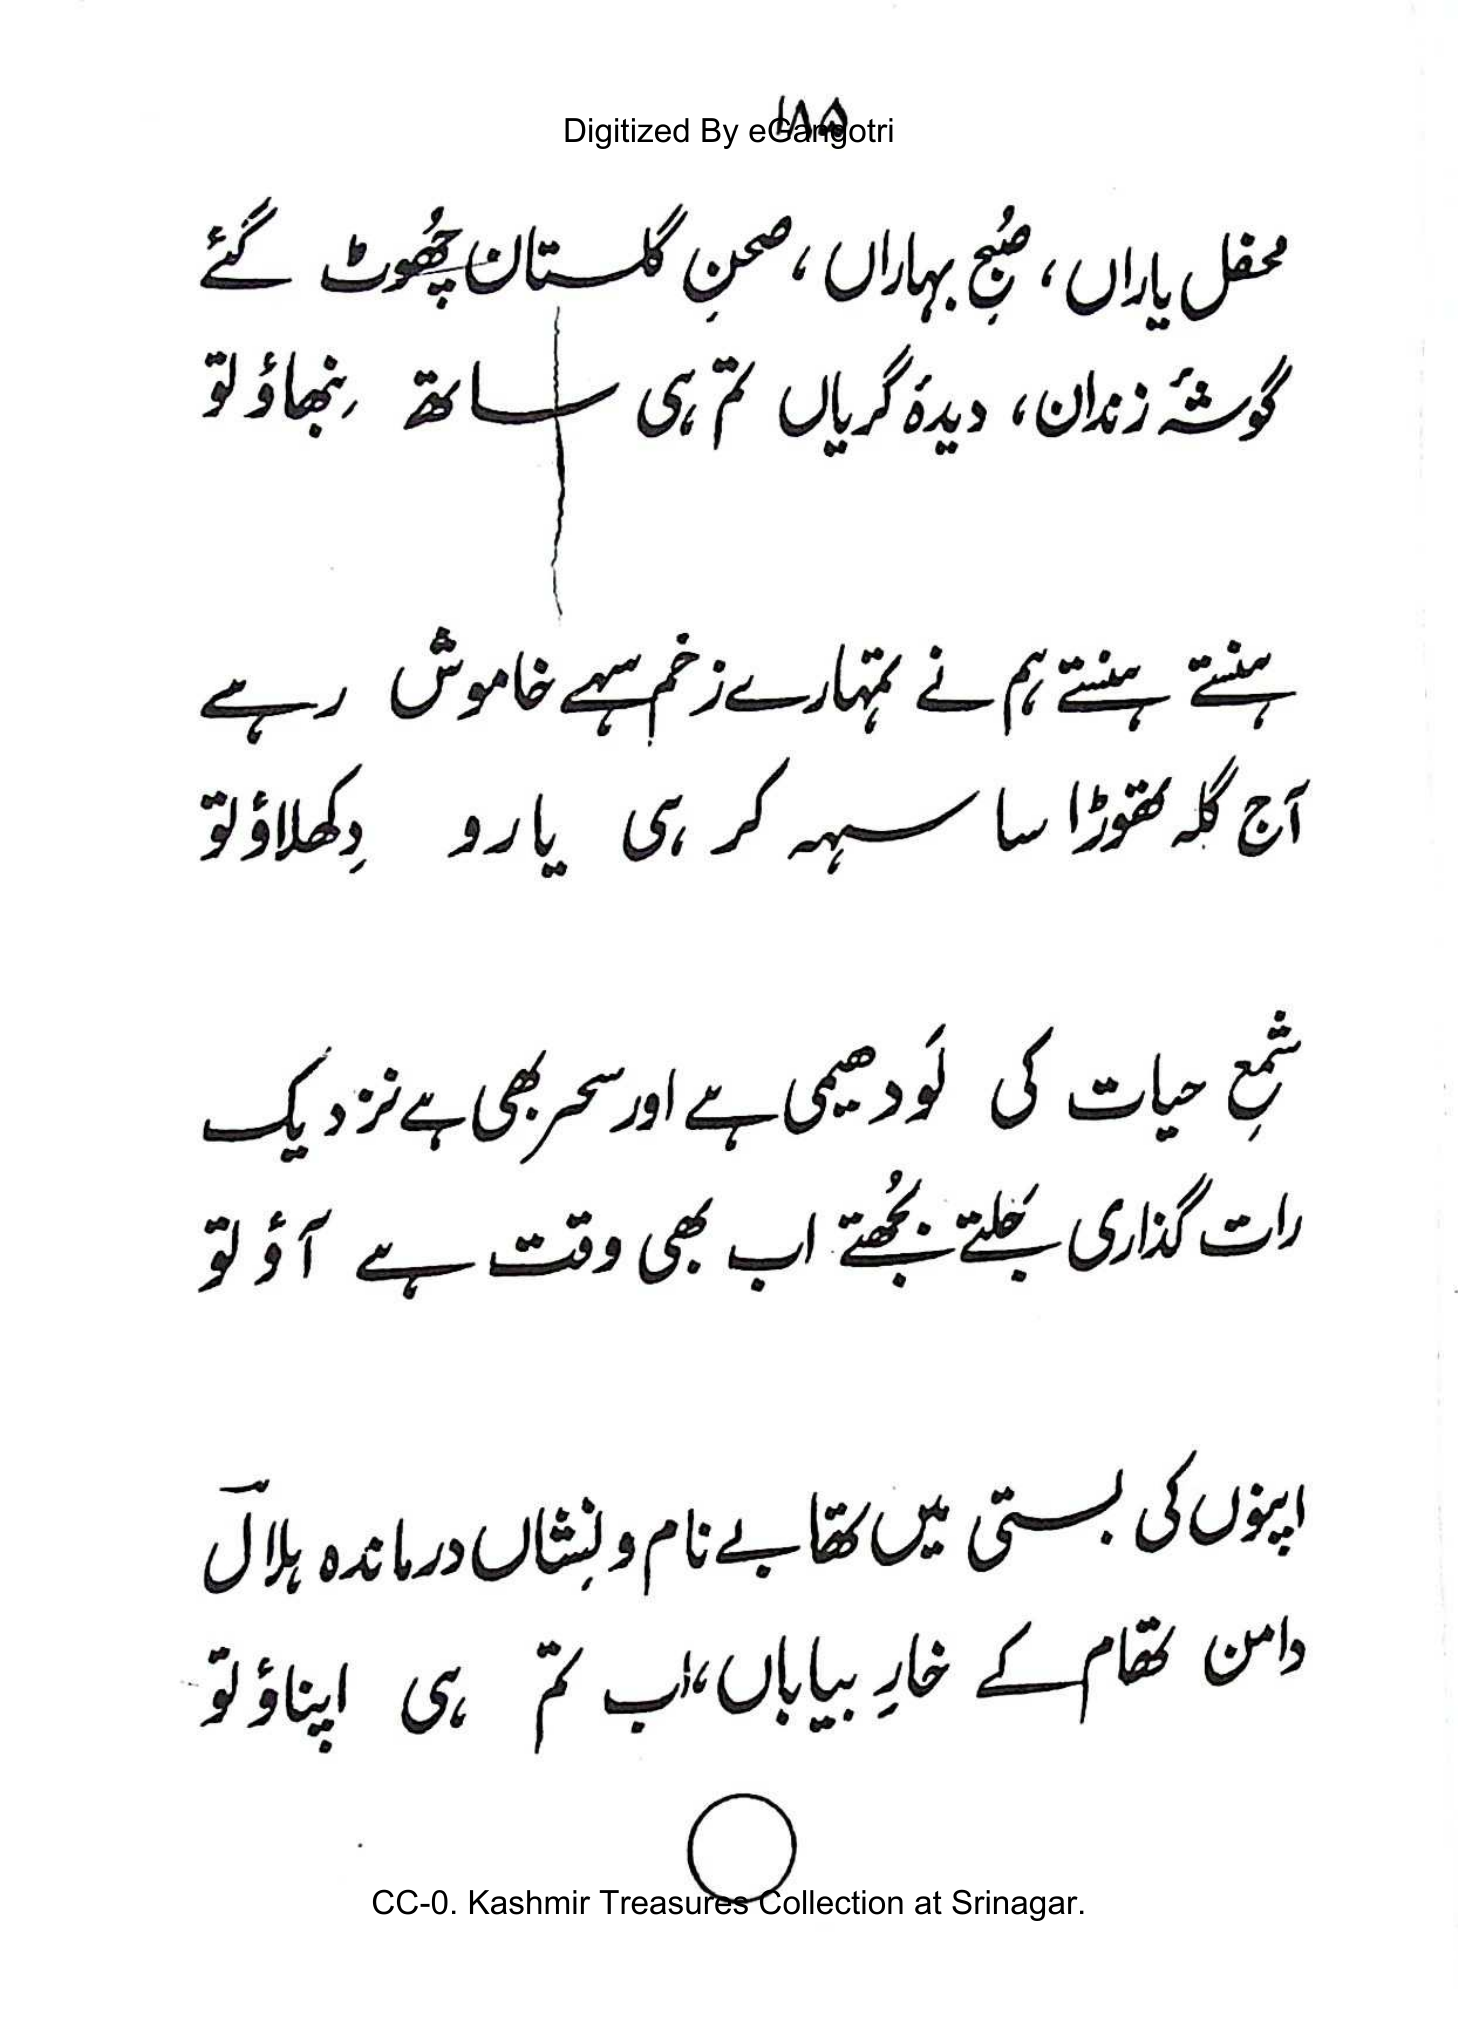 ۱۸۵
Digitized By eGangotri
محفل یاراں، صُبحِ بہاراں، صحنِ گلستان چھُوٹ گئے
گوشۂ زندان، دیدۂ گریاں تم ہی ساتھ نِبھاؤ تو
ہنستے ہنستے ہم نے تمہارے زخم سہے خاموش رہے
آج گلہ تھوڑا سا سہہ کر ہی یارو دِکھلاؤ تو
شمعِ حیات کی لَو دھیمی ہے اور سحر بھی ہے نزدیک
رات گذاری جَلتے بُجھتے اب بھی وقت ہے آؤ تو
اپنوں کی بستی میں تھا بے نام و نِشاں درماندہ ہلالؔ
دامن تھام کے خارِ بیاباں، اب تم ہی اپناؤ تو
CC-0. Kashmir Treasures Collection at Srinagar.